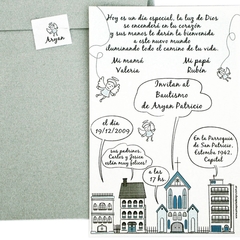 Aryan
Hoy es un día especial, la luz de Dios
se encenderá en tu corazón
y sus manos te darán la bienvenida
a este nuevo mundo
iluminando todo el camino de tu vida.
Mi mamá
Valeria
Mi papá
Rubén
Invitan al
Bautismo
de Aryan Patricio
el día
19/12/2009
sus padrinos,
Carlos y Jesica
están muy felices!
a las
17 hs.
En la Parroquia
de San Patricio,
Estomba 1942,
Capital